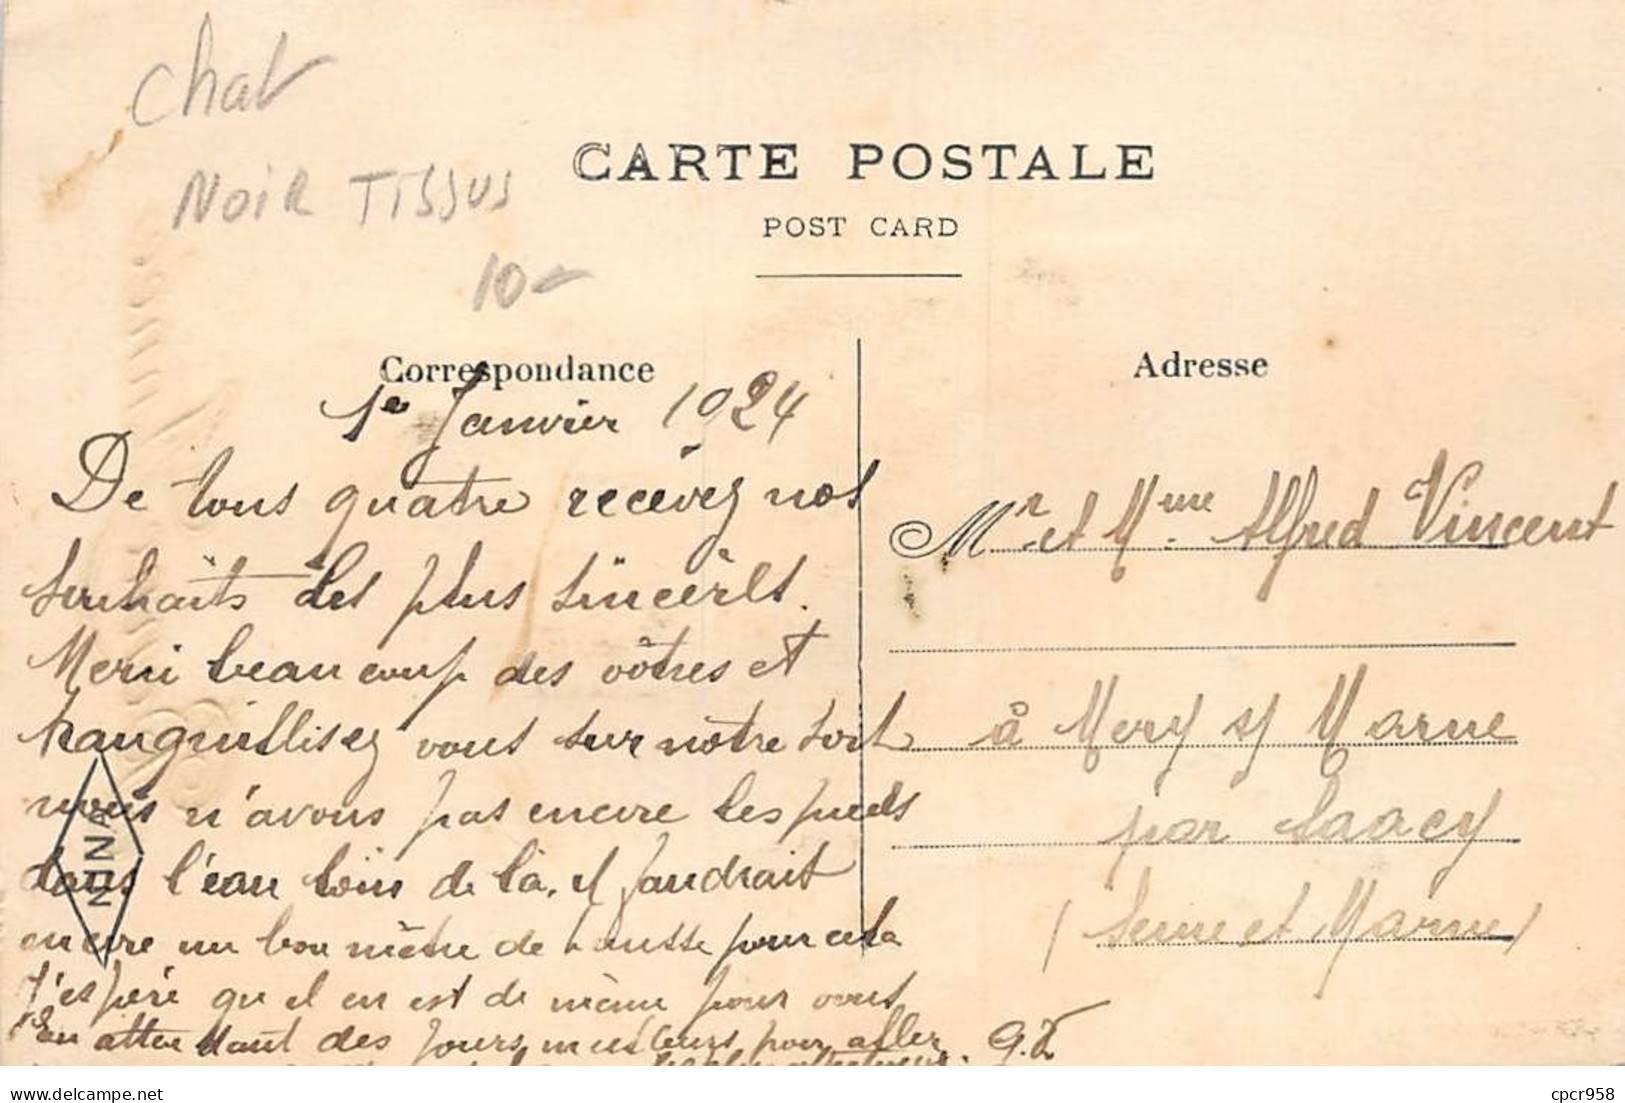 chat
NOIR TISSUS
10-
CARTE POSTALE
POST CARD
Correspondance
Adresse
1er Janvier 1924
De tous quatre recevez nos
souhaits des plus sincères.
Merci beaucoup des vôtres et
tranquillisez vous sur notre sort
nous n'avons pas encore les pieds
dans l'eau loin de là. il faudrait
encore un bon mètre de hausse pour cela
J'espère qu'il en est de même pour vous
En attendant des jours meilleurs pour aller
G.V
Mr. et Mme. Alfred Vincent
à Mery s/ Marne
par Saacy
(Seine et Marne)
NINA
cpcr958